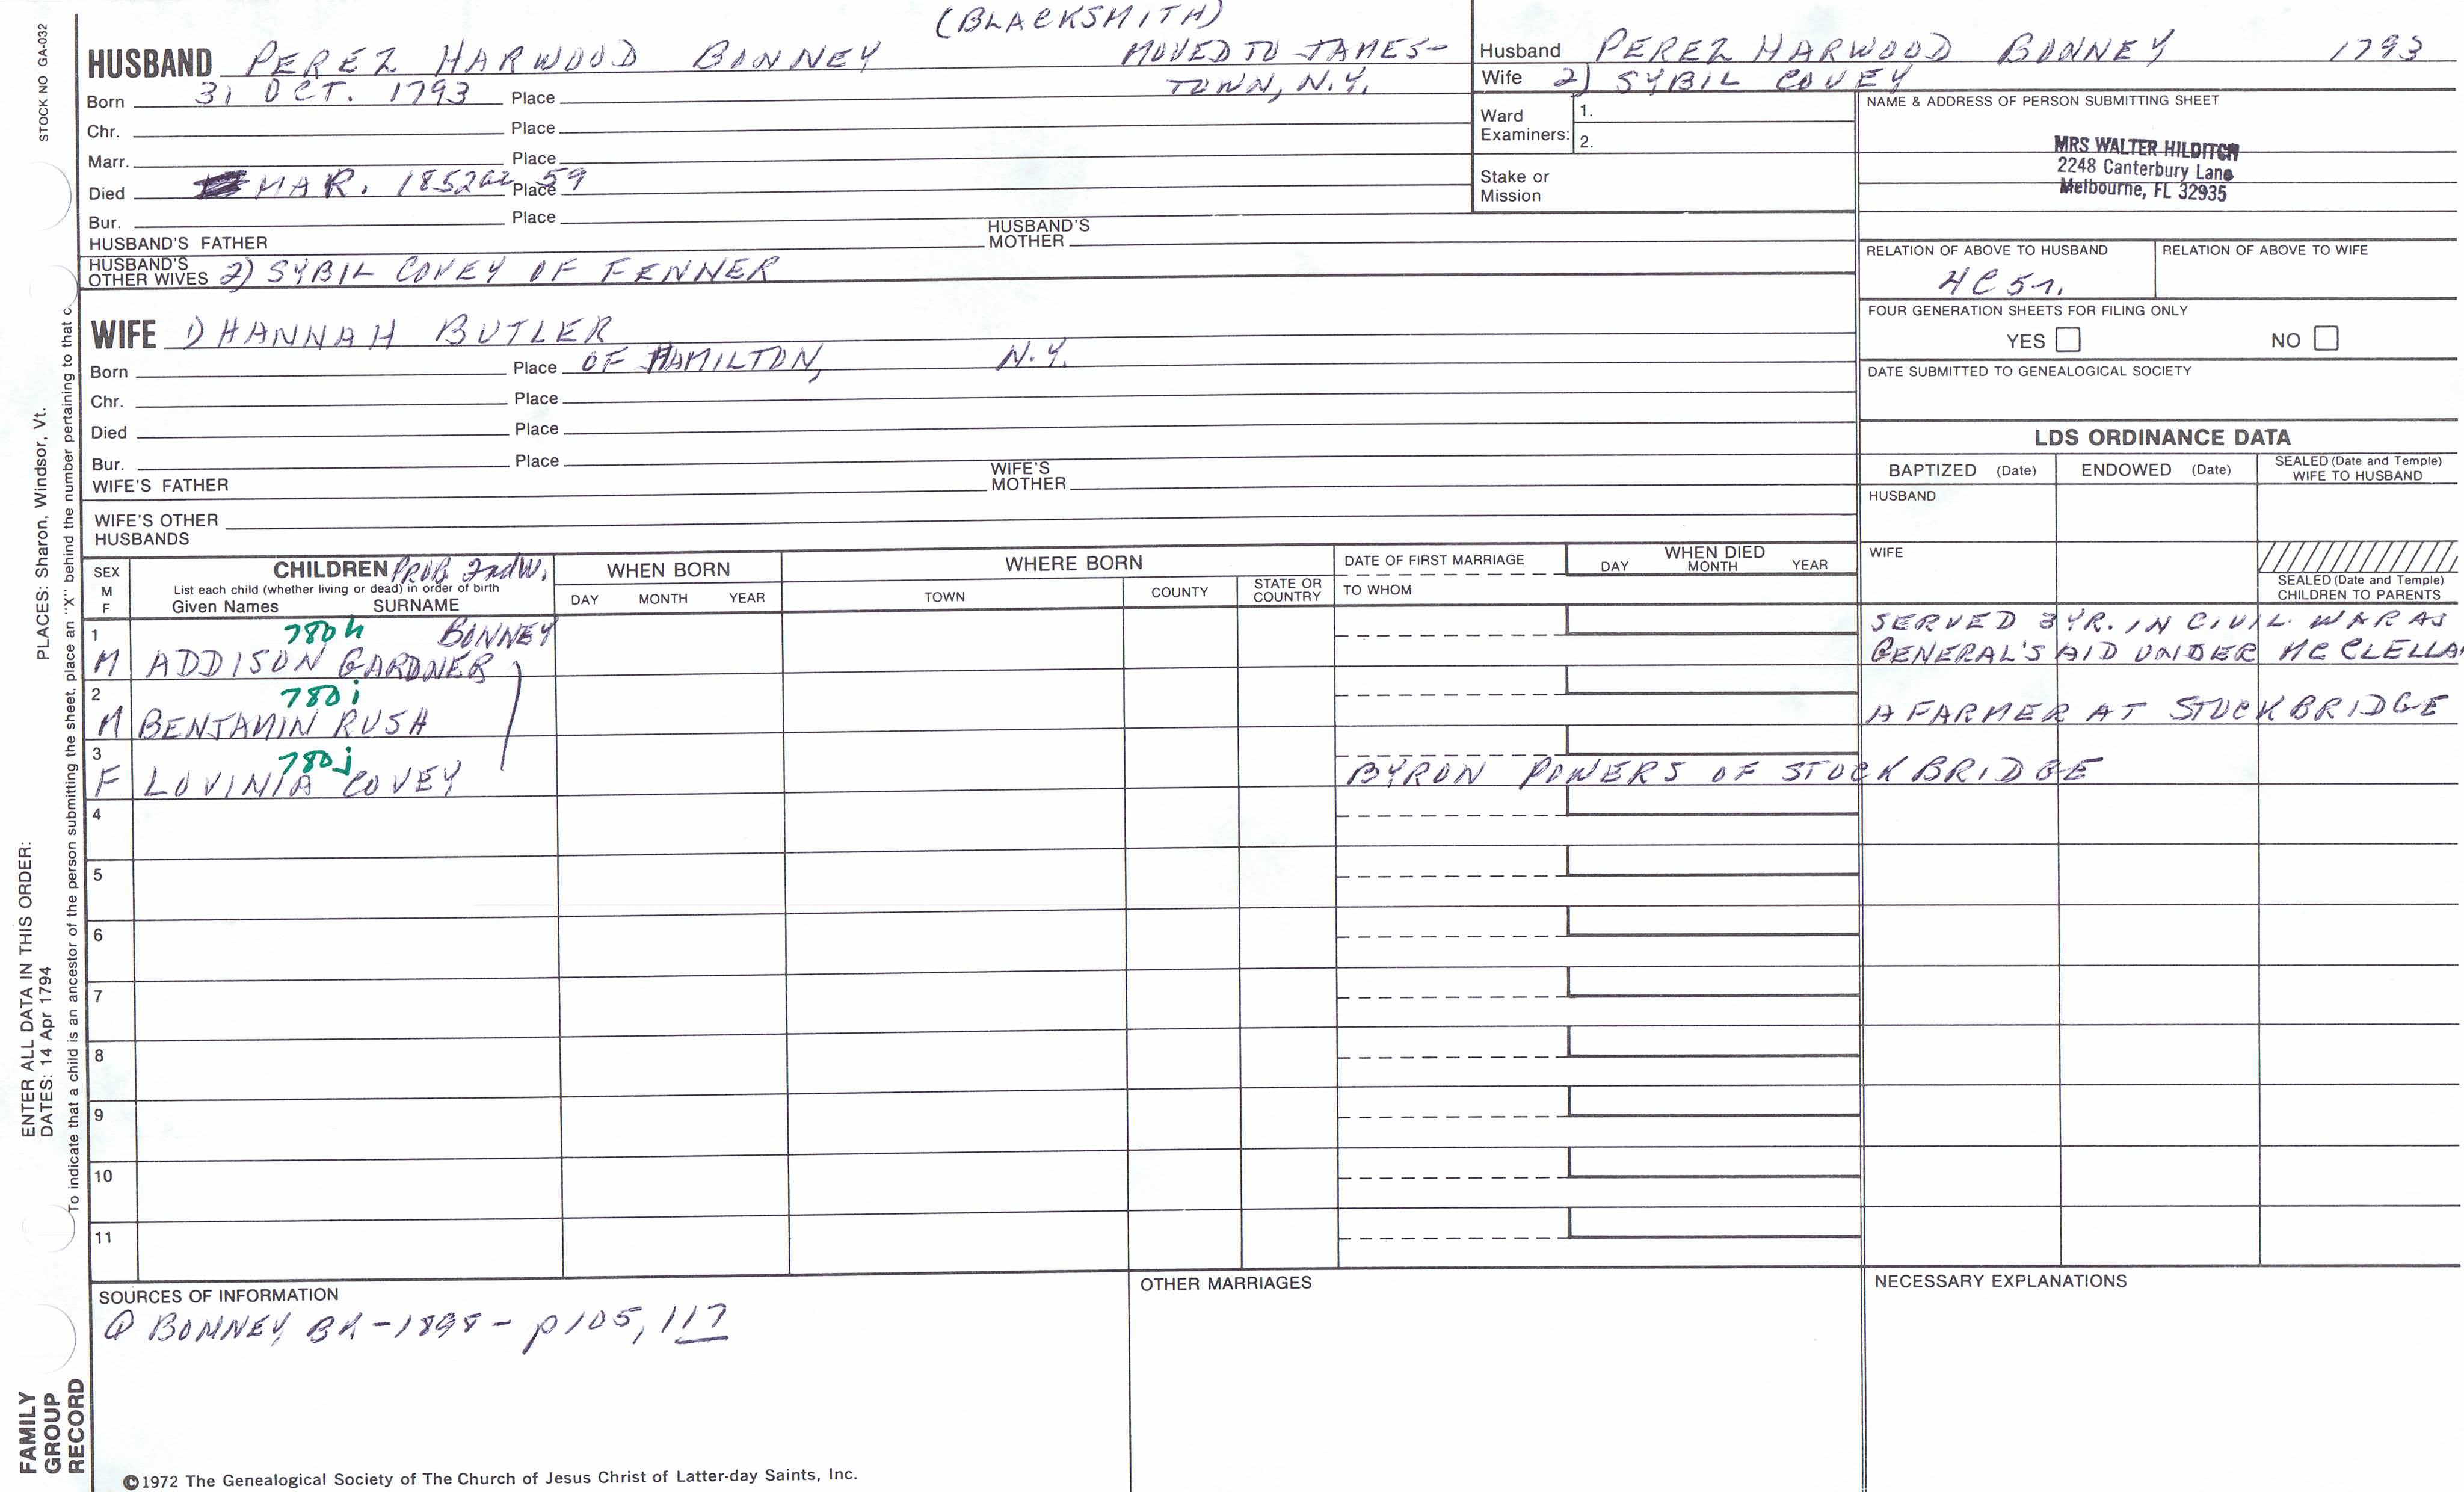 (BLACKSMITH)
HUSBAND PEREZ HARWOOD BONNEY MOVED TO JAMES-
Born 31 OCT. 1793 Place TOWN, N.Y.
Chr. Place
Marr. Place
Died MAR. 1852 Place 59
Bur. Place
HUSBAND'S FATHER HUSBAND'S MOTHER
HUSBAND'S OTHER WIVES 2) SYBIL COVEY OF FENNER
WIFE 1) HANNAH BUTLER
Born Place OF HAMILTON, N.Y.
Chr. Place
Died Place
Bur. Place
WIFE'S FATHER WIFE'S MOTHER
WIFE'S OTHER HUSBANDS
Husband PEREZ HARWOOD BONNEY 1793
Wife 2) SYBIL COVEY
Ward Examiners: 1.
2.
Stake or Mission
NAME & ADDRESS OF PERSON SUBMITTING SHEET
MRS WALTER HILDITCH
2248 Canterbury Lane
Melbourne, FL 32935
RELATION OF ABOVE TO HUSBAND RELATION OF ABOVE TO WIFE
4C5r.
FOUR GENERATION SHEETS FOR FILING ONLY
YES NO
DATE SUBMITTED TO GENEALOGICAL SOCIETY
LDS ORDINANCE DATA
BAPTIZED (Date) ENDOWED (Date) SEALED (Date and Temple) WIFE TO HUSBAND
HUSBAND
WIFE
SEALED (Date and Temple) CHILDREN TO PARENTS
SEX M F
CHILDREN PROB 2nd W.
List each child (whether living or dead) in order of birth
Given Names SURNAME
WHEN BORN
DAY MONTH YEAR
WHERE BORN
TOWN COUNTY STATE OR COUNTRY
DATE OF FIRST MARRIAGE
TO WHOM
WHEN DIED
DAY MONTH YEAR
1 780h BONNEY SERVED 3 YR. IN CIVIL WAR AS
M ADDISON GARDNER GENERAL'S AID UNDER MCCLELLA
2 780i
M BENJAMIN RUSH A FARMER AT STOCKBRIDGE
3 780j
F LOVINIA COVEY BYRON POWERS OF STOCKBRIDGE
4
5
6
7
8
9
10
11
SOURCES OF INFORMATION
BONNEY BK-1898- p105, 117
OTHER MARRIAGES
NECESSARY EXPLANATIONS
©1972 The Genealogical Society of The Church of Jesus Christ of Latter-day Saints, Inc.
STOCK NO GA-032
PLACES: Sharon, Windsor, Vt.
To indicate that a child is an ancestor of the person submitting the sheet, place an "X" behind the number pertaining to that c.
ENTER ALL DATA IN THIS ORDER:
DATES: 14 Apr 1794
FAMILY
GROUP
RECORD